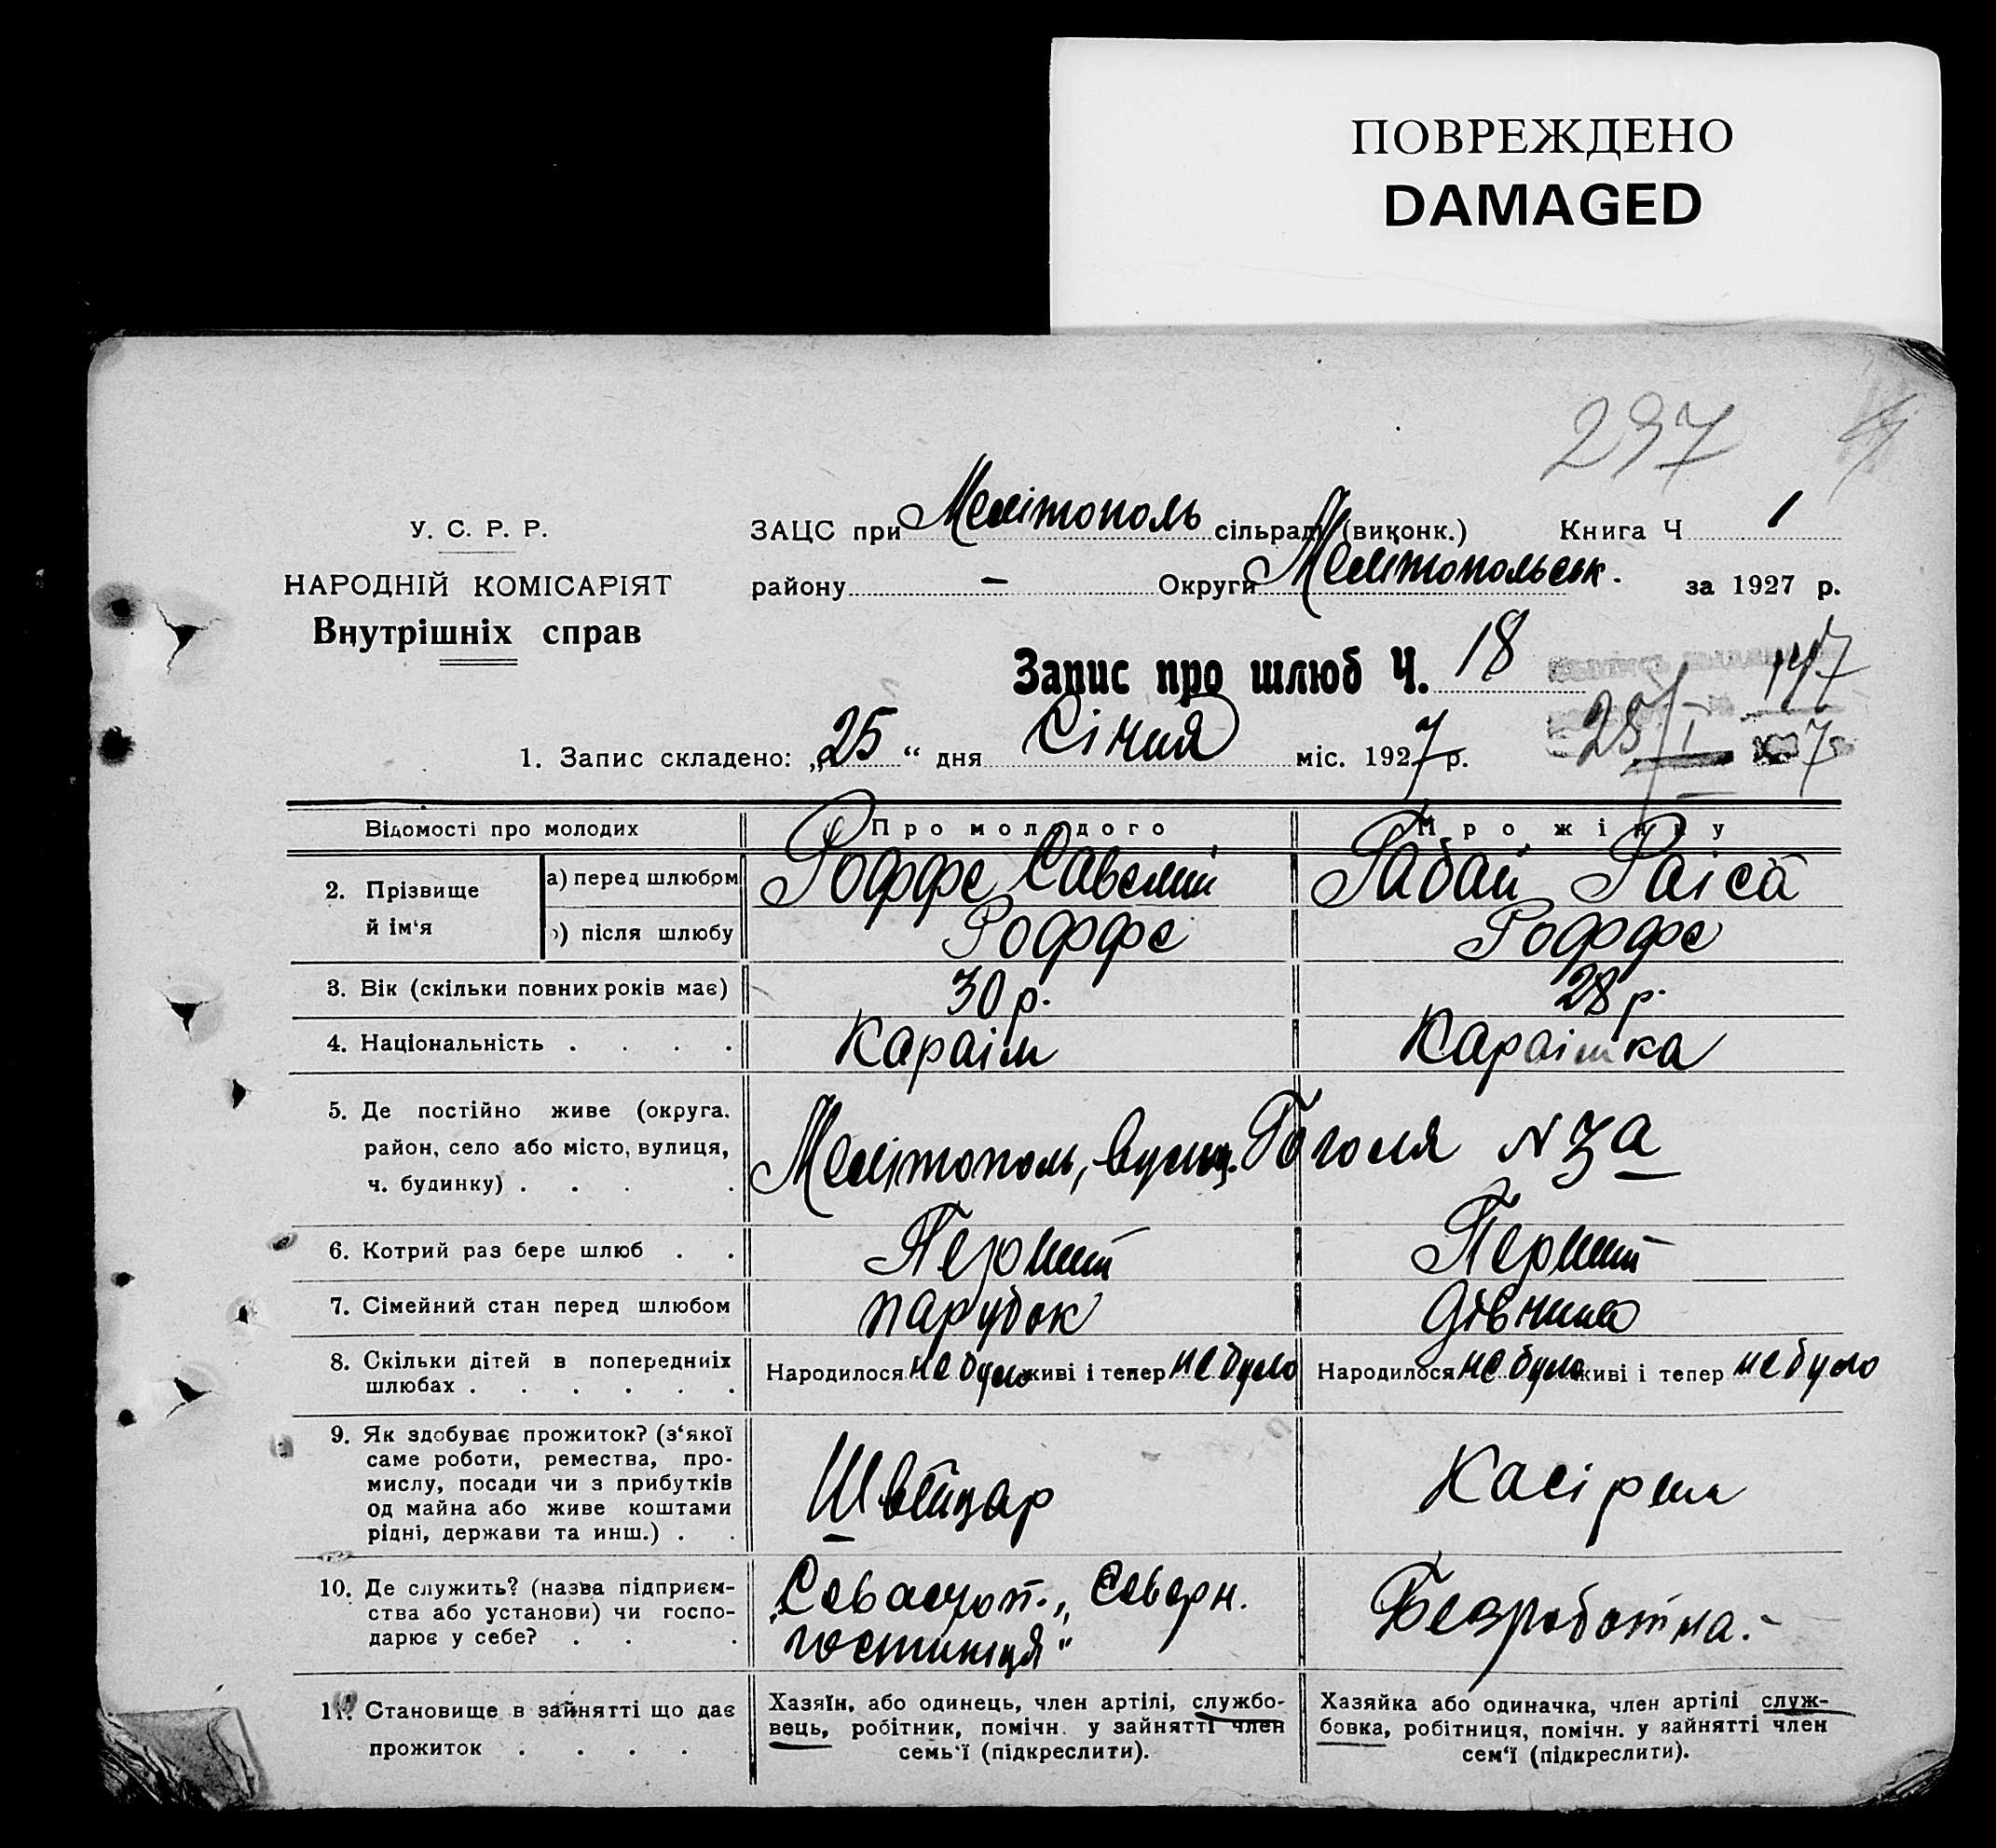 ПОВРЕЖДЕНО
DAMAGED
297
У. С. Р. Р.
НАРОДНІЙ КОМІСАРІЯТ
Внутрішніх справ
ЗАЦС при Мелітополь сільраді (виконк.) Книга Ч 1
району – Округи Мелітопольськ. за 1927 р.
Запис про шлюб Ч. 18
147
25/I 7
1. Запис складено: „25“ дня Січня міс. 1927 р.
Відомості про молодих Про молодого Про жінку
2. Прізвище й ім‘я а) перед шлюбом Роффе Савелий Рабай Раіса
) після шлюбу Роффе Роффе
3. Вік (скільки повних років має) 30 р. 28 р.
4. Національність . . . . Караім Караімка
5. Де постійно живе (округа.
район, село або місто, вулиця,
ч. будинку) . . . . Мелітополь, вулиц. Гоголя N 3а
6. Котрий раз бере шлюб . . Перший Перший
7. Сімейний стан перед шлюбом парубок дівчина
8. Скільки дітей в попередниіх
шлюбах . . . . . . Народилося не було живі і тепер не було Народилося не було живі і тепер не було
9. Як здобуває прожиток? (з‘якої
саме роботи, ремества, про-
мислу, посади чи з прибутків
од майна або живе коштами
рідні, держави та инш.) . . Швейцар Касірша
10. Де служить? (назва підприєм-
ства або установи) чи госпо-
дарює у себе? . . . Севастоп. „Северн.
гостиниця“ Безработна.-
11. Становище в зайнятті що дає
прожиток . . . . .
Хазяїн, або одинець, член артілі, службо-
вець, робітник, помічн. у зайнятті член
семь‘ї (підкреслити).
Хазяйка або одиначка, член артілі служ-
бовка, робітниця, помічн. у зайнятті член
сем‘ї (підкреслити).